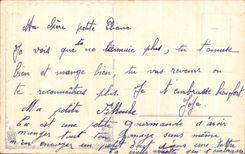 Ma chère petite Eliane
Je vois que tu ne t'ennuie plus, tu t'amuse
bien et mange bien, tu vas revenir on
te reconnaîtras plus. Je t'embrasse bien fort
Ma petite
tu est une petite gourmande d'avoir
manger tout fromage sans même
m'en envoyer un petit bout dans une lettre